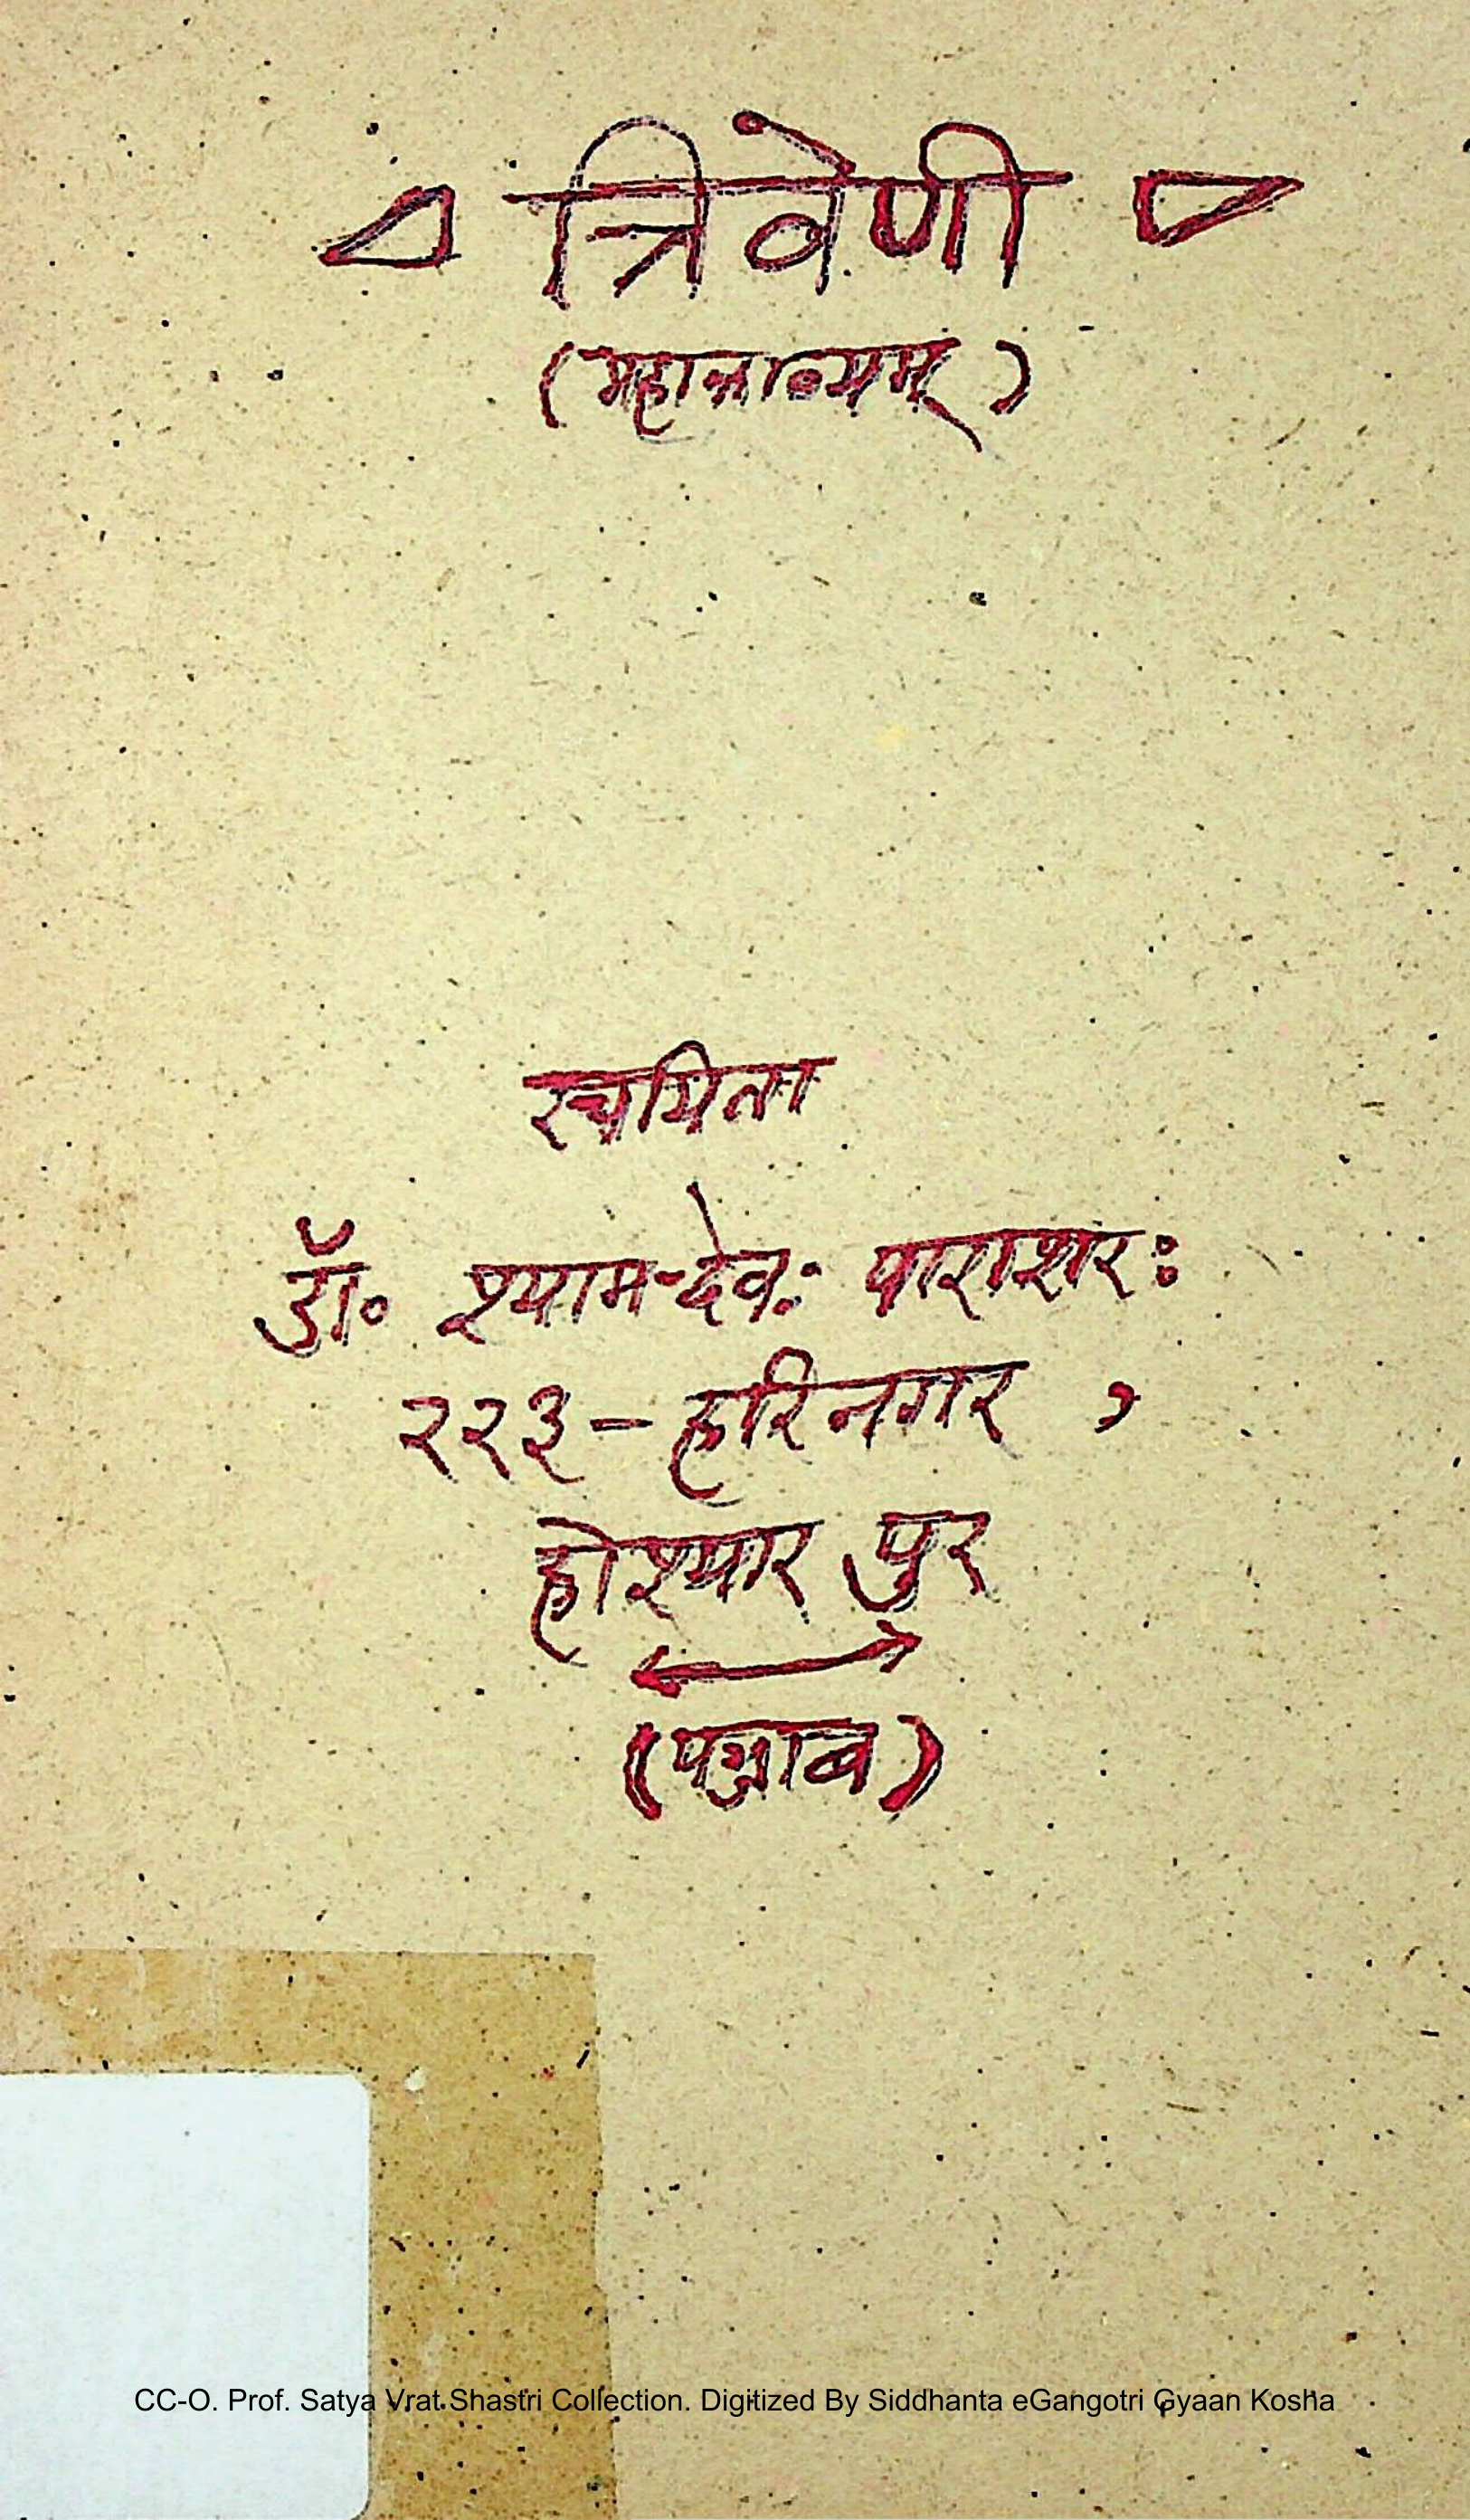 त्रिवेणी
(महाकाव्यम्)
रचयिता
डॉ० श्याम-देवः पाराशरः
२२३ - हरिनगर ,
होश्यार पुर
(पञ्जाब)
CC-O. Prof. Satya Vrat Shastri Collection. Digitized By Siddhanta eGangotri Gyaan Kosha